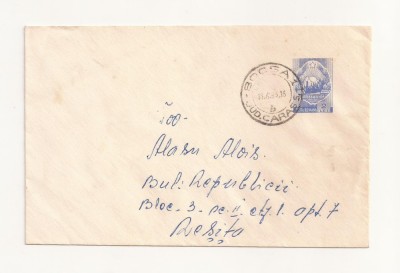 BOCȘA
JUD. CARAȘ
b
Alasu Alois.
Bul: Republicii
Bloc-3-sc. II etj. 1. apt. 7
Reșița